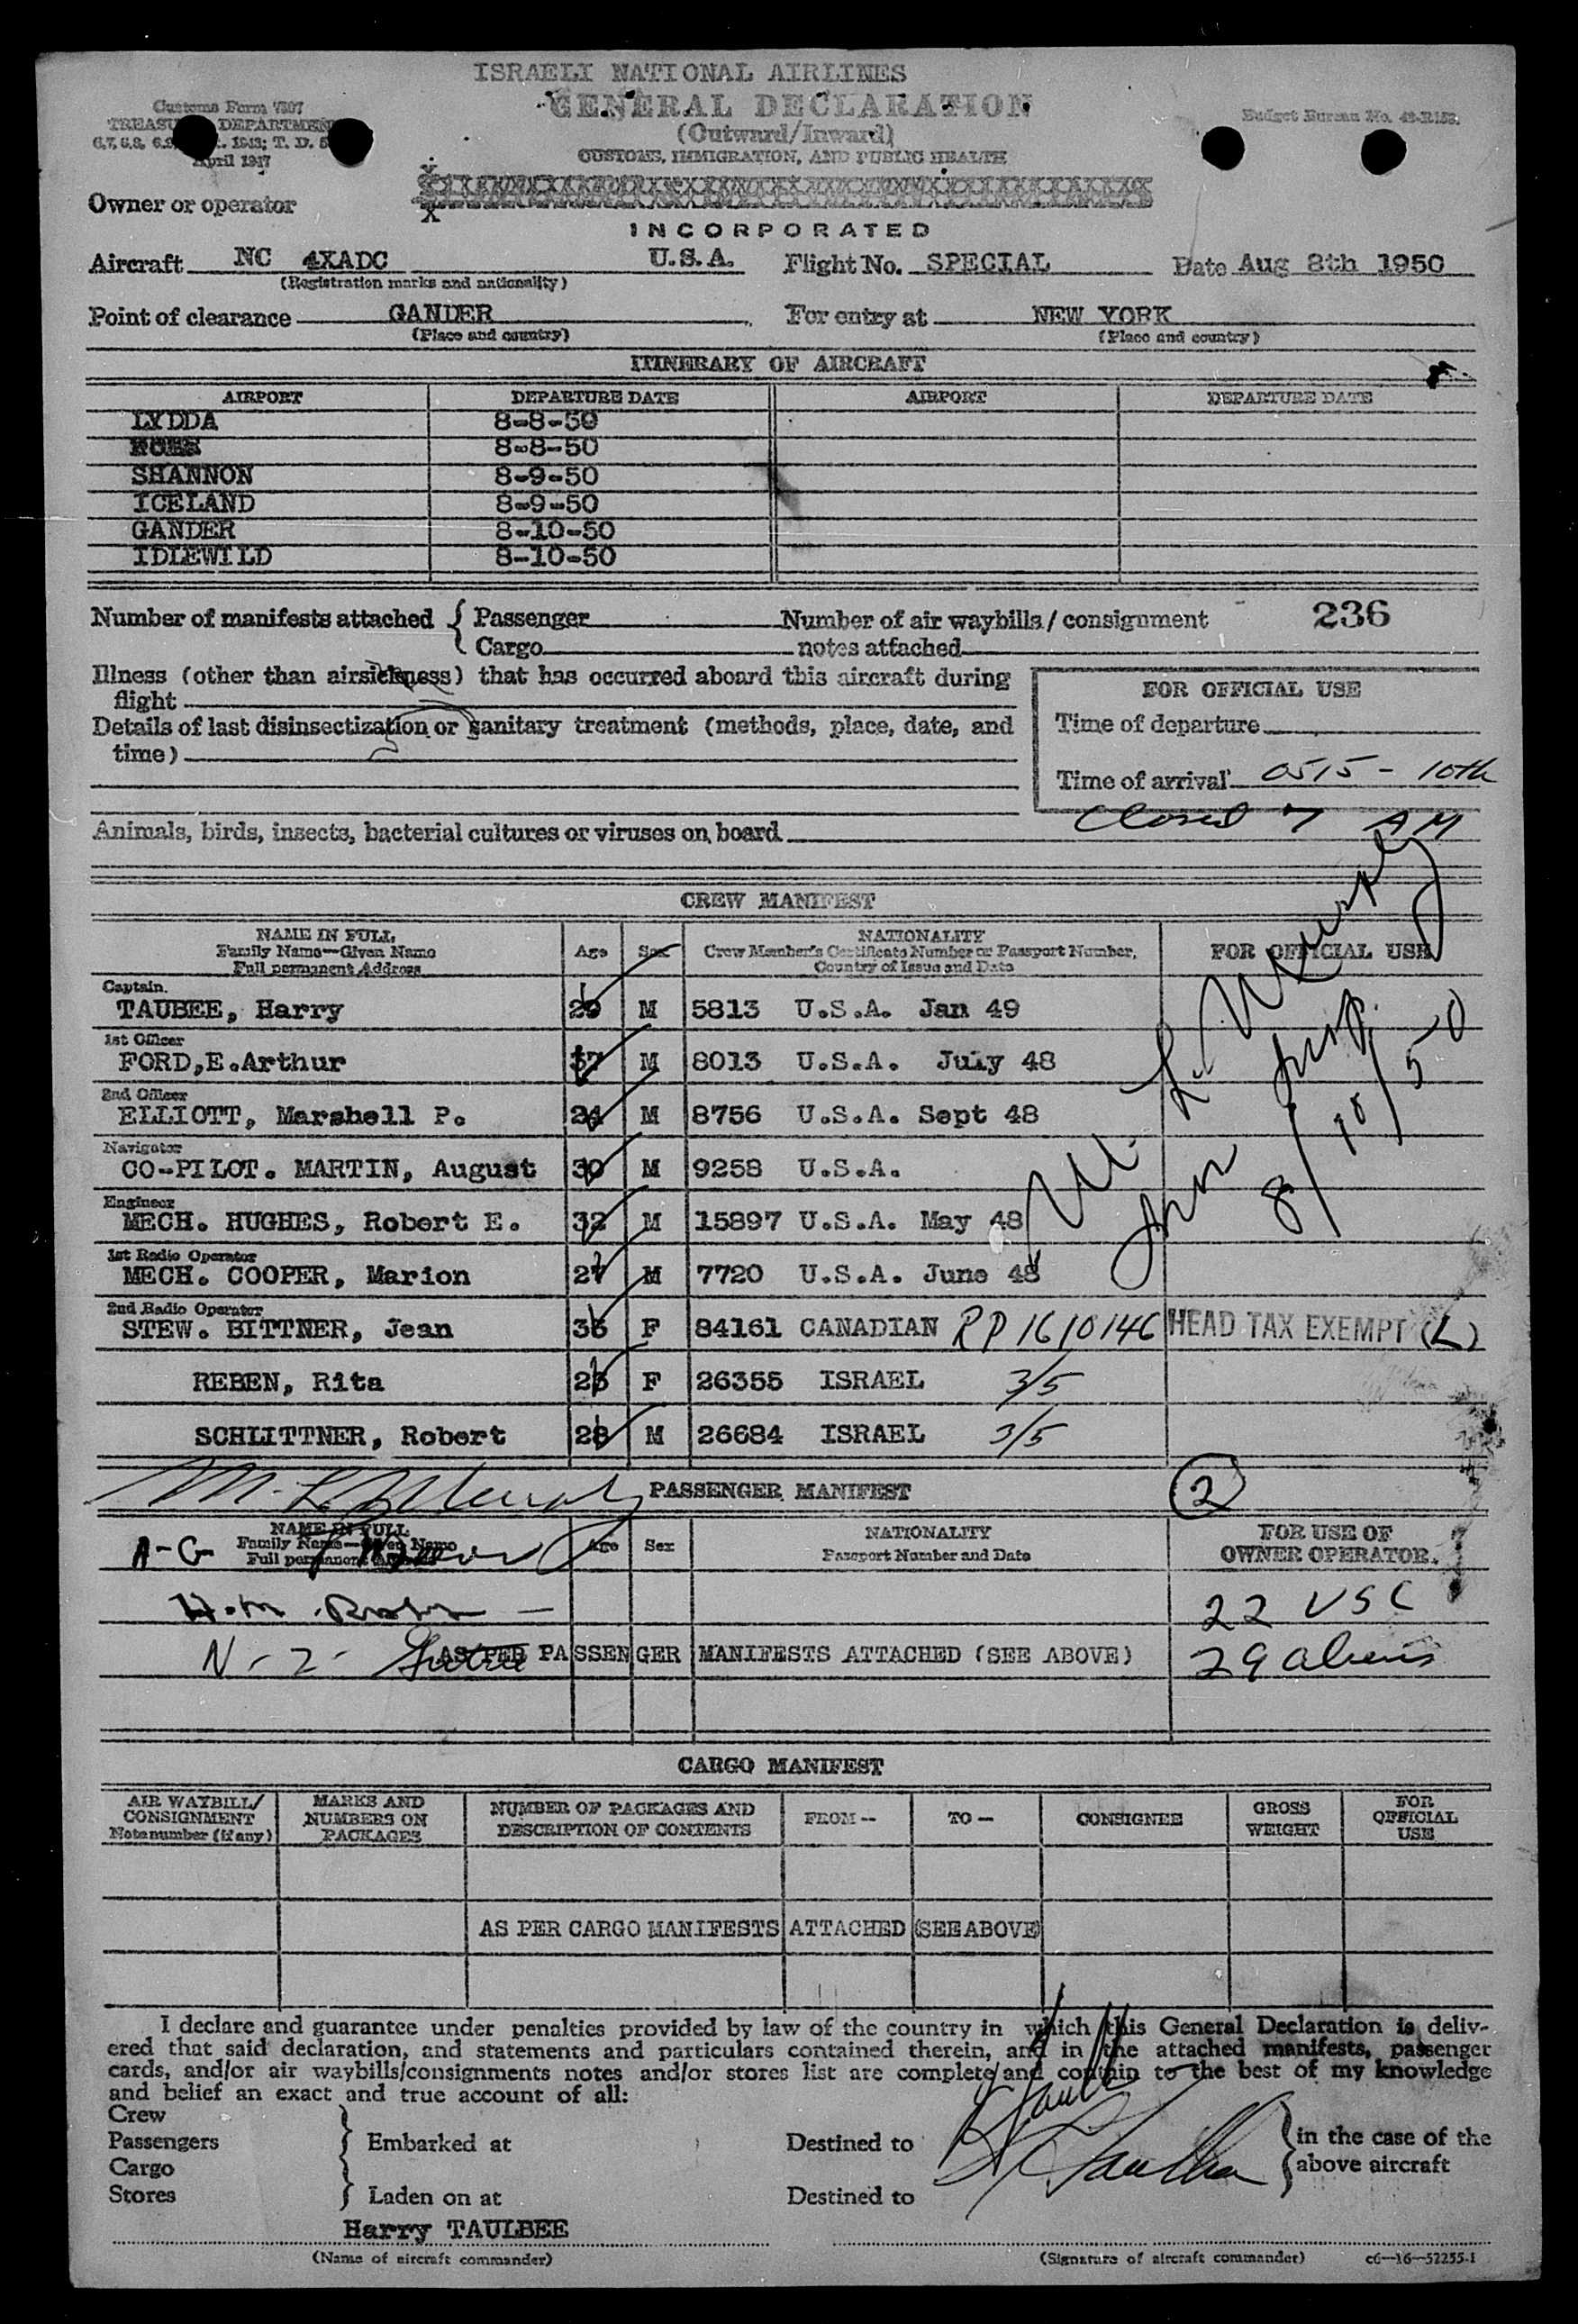 ISRAELI NATIONAL AIRLINES
Customs Form 7507
TREASURY DEPARTMENT
April 1947
GENERAL DECLARATION
(Outward/Inward)
CUSTOMS, IMMIGRATION, AND PUBLIC HEALTH
Budget Bureau No.
Owner or operator
INCORPORATED
Aircraft NC 4XADC U.S.A. Flight No. SPECIAL Date Aug 8th 1950
(Registration marks and nationality)
Point of clearance GANDER For entry at NEW YORK
(Place and country) (Place and country)
ITINERARY OF AIRCRAFT
AIRPORT DEPARTURE DATE AIRPORT DEPARTURE DATE
LYDDA 8-8-50
8-8-50
SHANNON 8-9-50
ICELAND 8-9-50
GANDER 8-10-50
IDLEWILD 8-10-50
Number of manifests attached { Passenger Number of air waybills/consignment 236
Cargo notes attached
Illness (other than airsickness) that has occurred aboard this aircraft during
flight
Details of last disinsectization or sanitary treatment (methods, place, date, and
time)
FOR OFFICIAL USE
Time of departure
Time of arrival 0515 - 10th
Closed 7 AM
Animals, birds, insects, bacterial cultures or viruses on board
CREW MANIFEST
NAME IN FULL
Family Name—Given Name
Full permanent Address
Age Sex
NATIONALITY
Crew Member's Certificate Number or Passport Number,
Country of Issue and Date
FOR OFFICIAL USE
Captain.
TAUBEE, Harry 29 M 5813 U.S.A. Jan 49
1st Officer
FORD,E.Arthur 37 M 8013 U.S.A. July 48
2nd Officer
ELLIOTT, Marshell P. 24 M 8756 U.S.A. Sept 48
Navigator
CO-PILOT. MARTIN, August 30 M 9258 U.S.A.
Engineer
MECH. HUGHES, Robert E. 32 M 15897 U.S.A. May 48
1st Radio Operator
MECH. COOPER, Marion 27 M 7720 U.S.A. June 48
2nd Radio Operator
STEW. BITTNER, Jean 36 F 84161 CANADIAN RP 1610146 HEAD TAX EXEMPT (L)
REBEN, Rita 23 F 26355 ISRAEL 3/5
SCHLITTNER, Robert 28 M 26684 ISRAEL 3/5
8/10/50
PASSENGER MANIFEST 2
NAME IN FULL
Family Name—Given Name
Full permanent
Age Sex
NATIONALITY
Passport Number and Date
FOR USE OF
OWNER OPERATOR.
A-G
H-M
22 USC
N-Z AS PER PASSENGER MANIFESTS ATTACHED (SEE ABOVE) 29 aliens
CARGO MANIFEST
AIR WAYBILL/
CONSIGNMENT
Note number (if any)
MARKS AND
NUMBERS ON
PACKAGES
NUMBER OF PACKAGES AND
DESCRIPTION OF CONTENTS
FROM —
TO —
CONSIGNEE
GROSS
WEIGHT
FOR
OFFICIAL
USE
AS PER CARGO MANIFESTS ATTACHED (SEE ABOVE)
I declare and guarantee under penalties provided by law of the country in which this General Declaration is deliv-
ered that said declaration, and statements and particulars contained therein, and in the attached manifests, passenger
cards, and/or air waybills/consignments notes and/or stores list are complete and contain to the best of my knowledge
and belief an exact and true account of all:
Crew
Passengers } Embarked at Destined to } in the case of the
Cargo above aircraft
Stores } Laden on at Destined to
Harry TAULBEE
(Name of aircraft commander) (Signature of aircraft commander) c6—16—52255-1